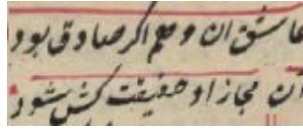 عاشق آن وهم اگر صادق بود
آن مجاز او حقیقت کش شود